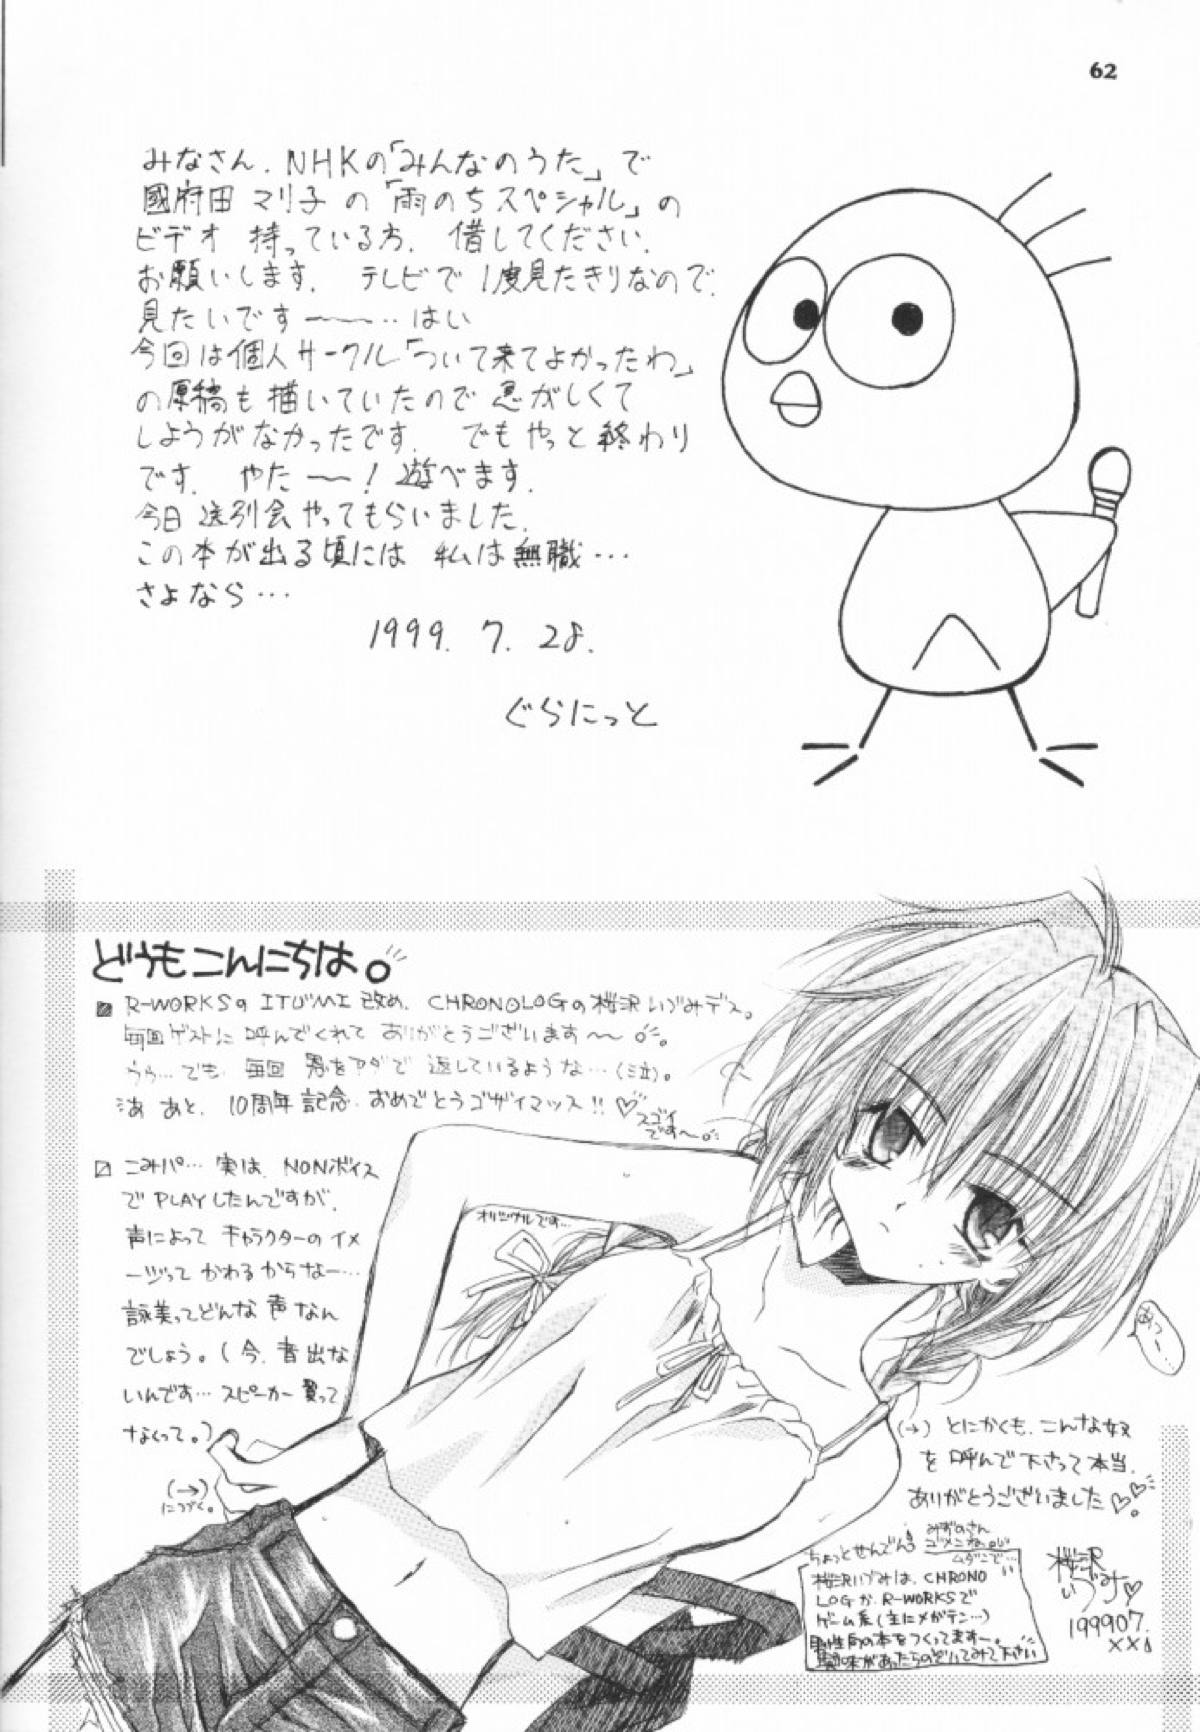 62
みなさん、NHKの「みんなのうた」で
國府田マリ子の「雨のちスペシャル」の
ビデオ持っている方、借してください。
お願いします。テレビで1度見たきりなので、
見たいです〜〜‥はい
今回は個人サークル「ついて来てよかったわ」
の原稿も描いていたので忽がしくて
しようがなかったです。でもやっと終わり
です。やた〜〜!遊べます。
今日送別会やってもらいました。
この本が出る頃には私は無職…
さよなら…
1999.7.28.
ぐらにっと
どうもこんにちは。
R-WORKSのITUMI改め、CHRONOLOGの桜沢いづみデス。
毎回ゲストに呼んでくれてありがとうございます〜。
うぅ…でも、毎回恩をアダで返しているような…(泣)。
あ あと、10周年記念、おめでとうゴザイマッス!!♡
スゴイ
です〜。
こみパ…実は、NONボイス
でPLAYしたんですが、
声によってキャラクターのイメ
ージってかわるからなー…
詠美ってどんな声なん
でしょう。(今、音出な
いんです…スピーカー買って
なくって。)
(→)
につづく。
オリジナルです…
あつ〜、
(→)とにかくも、こんな奴
を呼んで下さって本当、
ありがとうございました♡♡。
みずのさん
ゴメンね。
ちょっとせんでん!
ムダにで…
桜沢いづみは、CHRONO
LOGか、R-WORKSで
ゲーム系(主にメガテン…)
男性向の本をつくってますー。
興味があったらのぞいてみて下さい
桜沢
いづみ♡
199907.
××